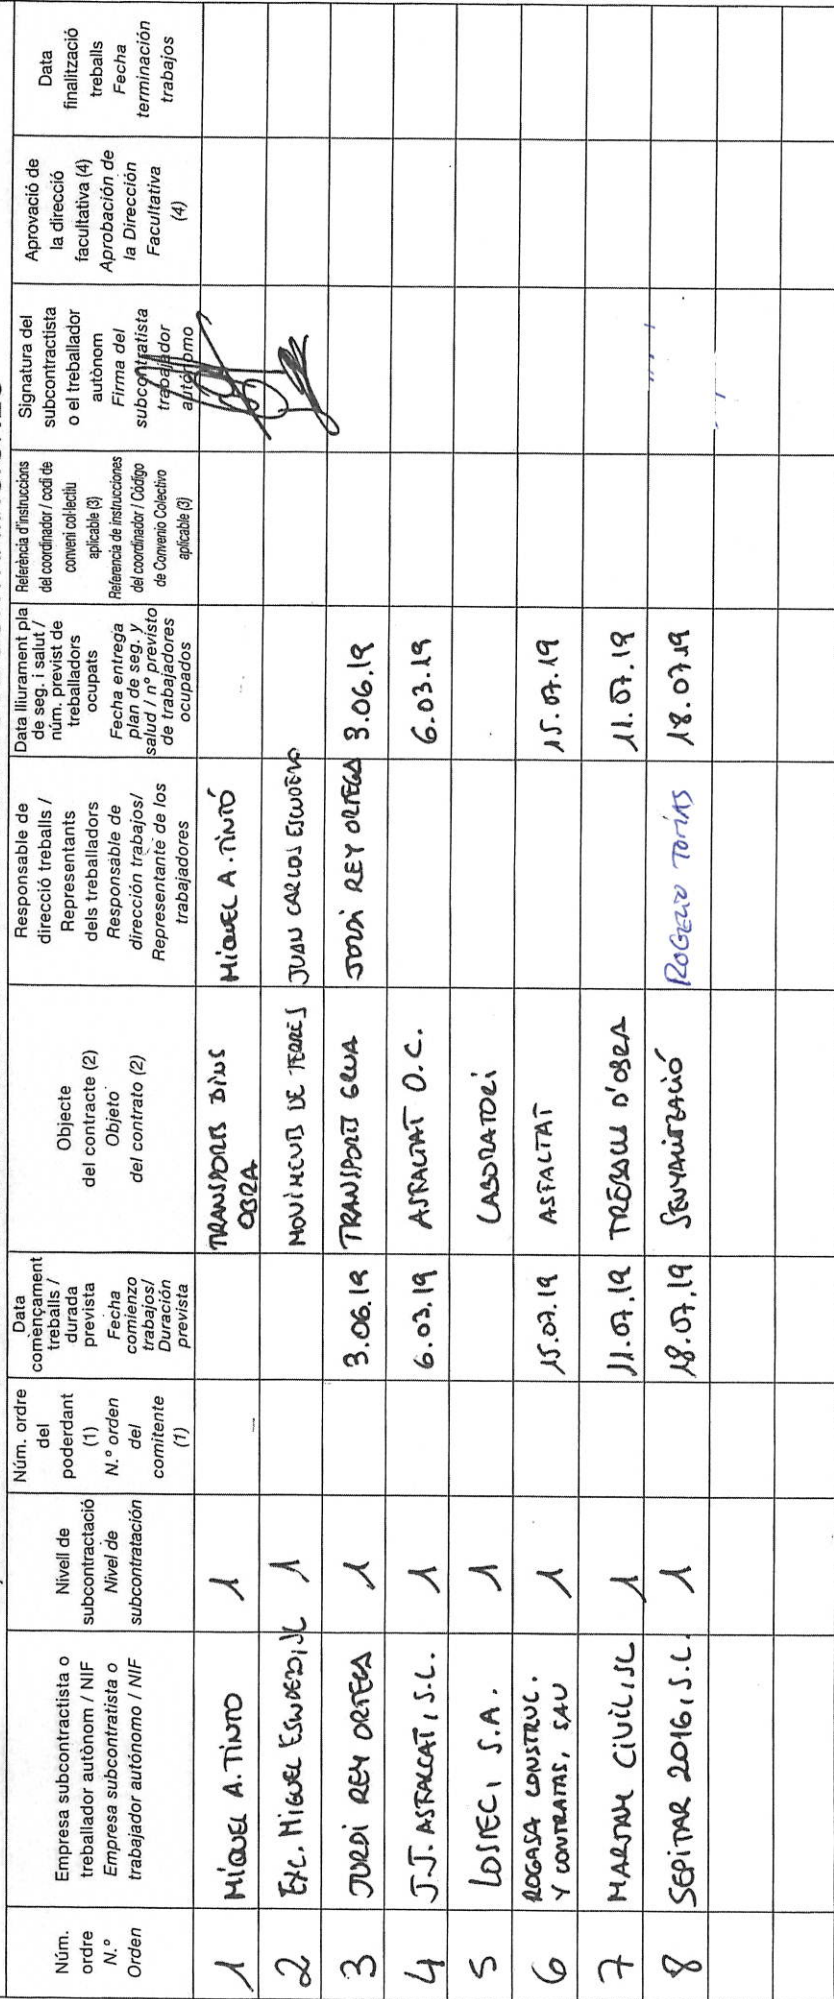 Núm.
ordre
N.º
Orden
Empresa subcontractista o
treballador autònom / NIF
Empresa subcontratista o
trabajador autónomo / NIF
Nivell de
subcontractació
Nivel de
subcontratación
Núm. ordre
del
poderdant
(1)
N.º orden
del
comitente
(1)
Data
començament
treballs /
durada
prevista
Fecha
comienzo
trabajos/
Duración
prevista
Objecte
del contracte (2)
Objeto
del contrato (2)
Responsable de
direcció treballs /
Representants
dels treballadors
Responsable de
dirección trabajos/
Representante de los
trabajadores
Data lliurament pla
de seg. i salut /
núm. previst de
treballadors
ocupats
Fecha entrega
plan de seg. y
salud / nº previsto
de trabajadores
ocupados
Referència d'instruccions
del coordinador / codi de
conveni col·lectiu
aplicable (3)
Referencia de instrucciones
del coordinador / Código
de Convenio Colectivo
aplicable (3)
Signatura del
subcontractista
o el treballador
autònom
Firma del
subcontratista
trabajador
autónomo
Aprovació de
la direcció
facultativa (4)
Aprobación de
la Dirección
Facultativa
(4)
Data
finalització
treballs
Fecha
terminación
trabajos
1 MIQUEL A. TINTO 1 TRANSPORTS DINS
OBRA MIQUEL A. TINTÓ
2 EXC. MIGUEL 1 MOVIMENTS DE TERRES JUAN CARLOS ESCUDERO
3 JORDI REY ORTEGA 1 3.06.19 TRANSPORT GRUA JORDI REY ORTEGA 3.06.19
4 J.J. ASFALCAT, S.L. 1 6.03.19 ASFALTAT O.C. 6.03.19
5 LOSTEC, S.A. 1 LABORATORI
6 ROGASA CONSTRUC.
Y CONTRATAS, SAU 1 15.07.19 ASFALTAT 15.07.19
7 CIVIL, SL 1 11.07.19 TREBALLS D'OBRA 11.07.19
8 SEPITAR 2016, S.L. 1 18.07.19 SENYALITZACIÓ ROGELIO TOMÁS 18.07.19